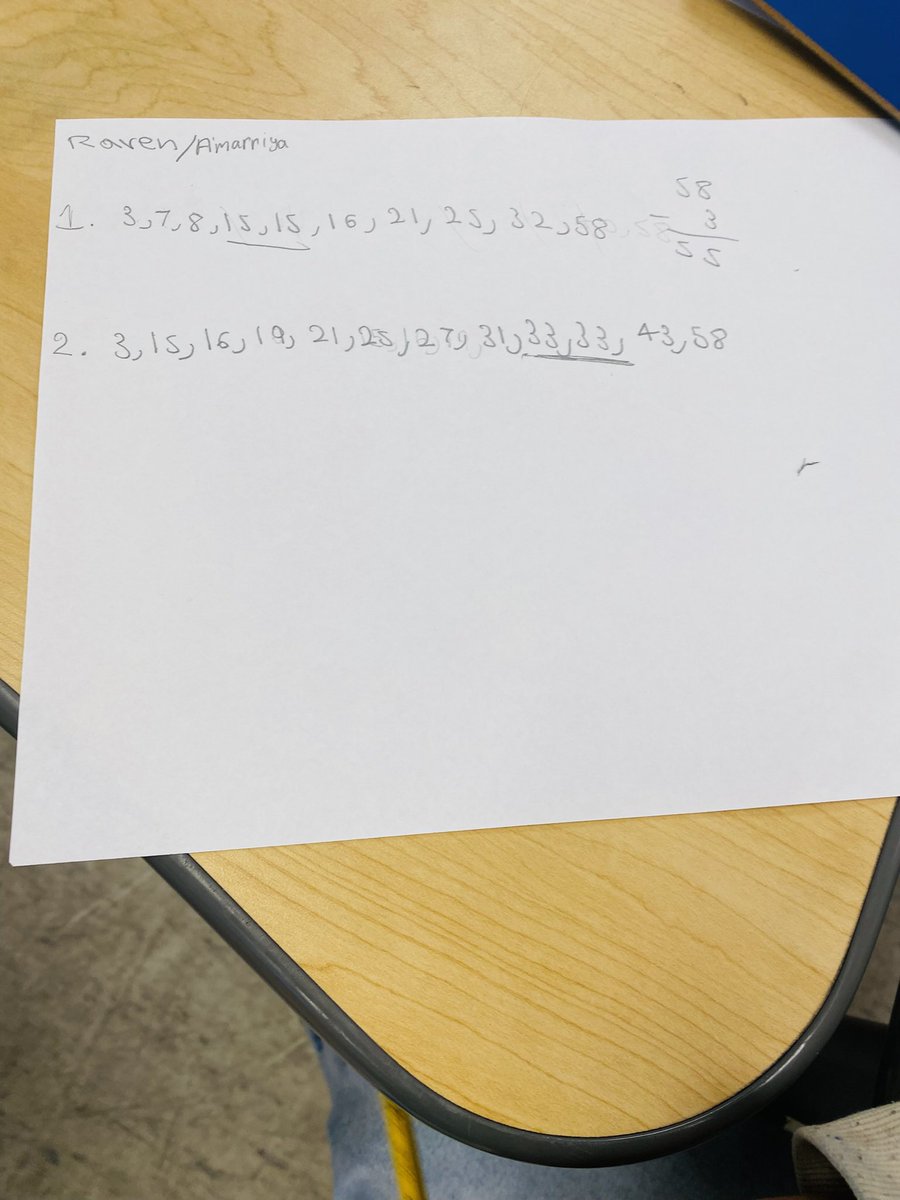 Raven/Aimarriya
1. 3,7,8,15,15,16,21,25,32,58
58
- 3
55
2. 3,15,16,19,21,25,27,31,33,33,43,58
r